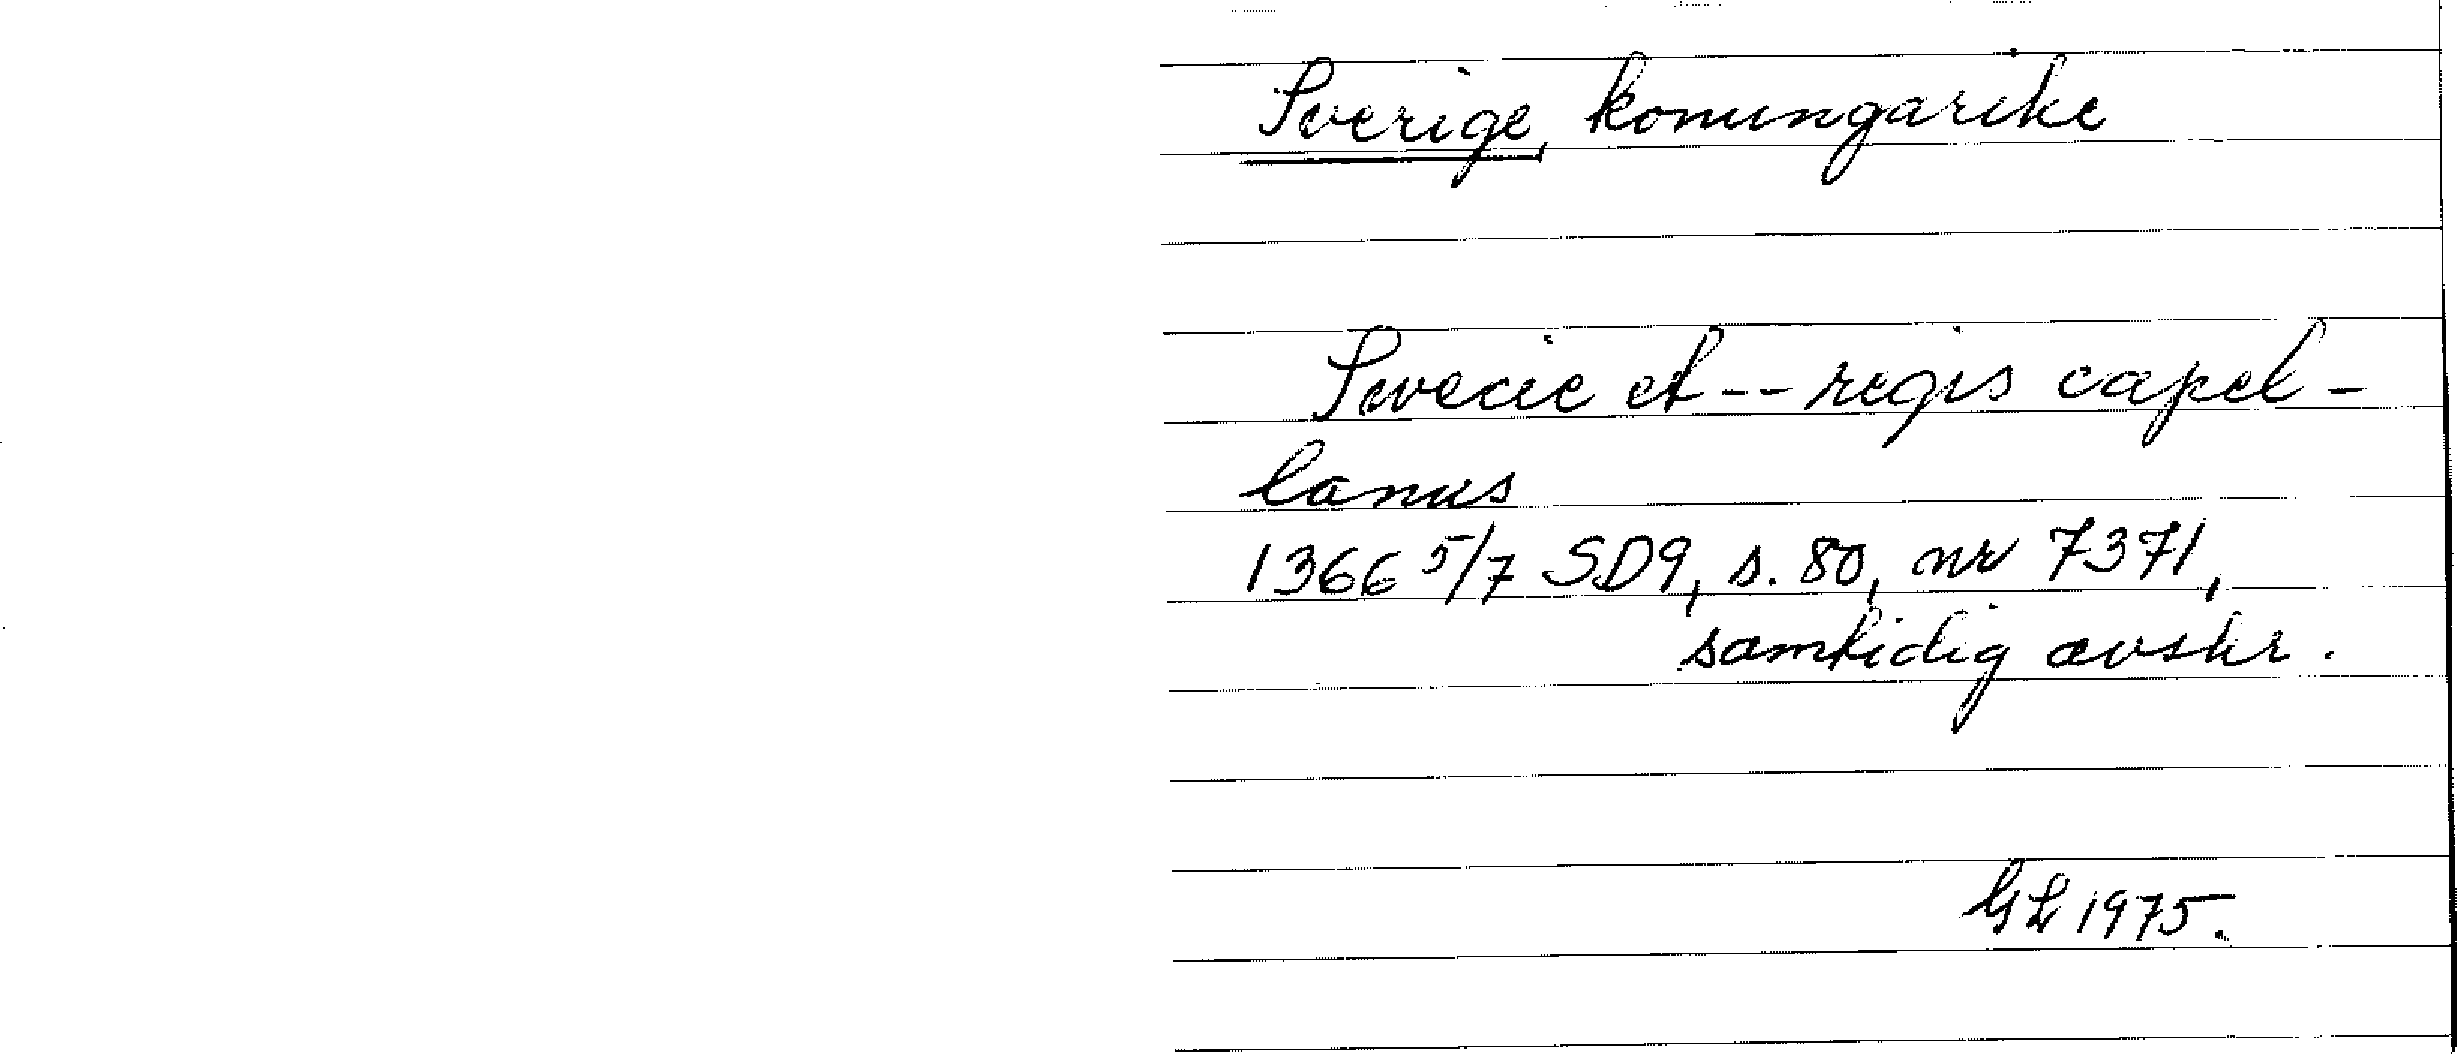 Sverige, konungarike
Swecie et -- regis capel-
lanus
1366 5/7 SD9, s. 80, nr 7371,
samtidig avskr.
GL 1975.